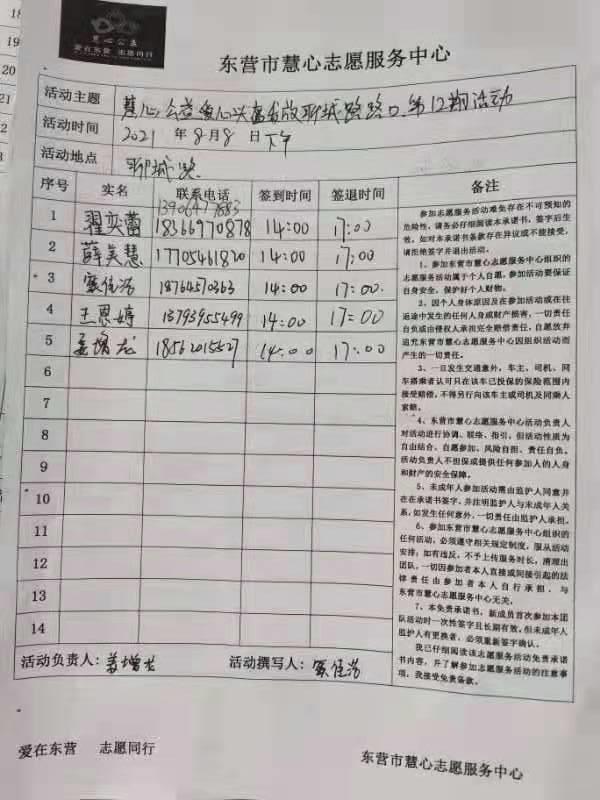 慧心公益
爱在东营 志愿同行
东营市慧心志愿服务中心
活动主题 慧心公益爱心 聊城路路口第12期活动
活动时间 2021年8月8日下午
活动地点 聊城路
序号 实名 联系电话 签到时间 签退时间 备注
13906477883
1 翟奕蕾 18366970878 14:00 17:00
2 薛吴慧 17705461820 14:00 17:00
3 窦佳浩 18764570363 14:00 17:00.
4 王恩婷 13793955499 14:00 17:00
5 姜增龙 18562015527 14:00 17:00
6
7
8
9
10
11
12
13
14
参加志愿服务活动难免存在不可预知的
危险性，请务必仔细阅读本承诺书，签字后生
效。如对本承诺书条款存在异议或不能接受，
请拒绝签字并退出活动。
1、参加东营市慧心志愿服务中心组织的
志愿服务活动属于个人自愿。参加活动要保证
自身安全，保护好个人财物。
2、因个人身体原因及在参加活动或在往
返途中发生的任何人身或财产损害，一切责任
自负或由侵权人承担完全赔偿责任，自愿放弃
追究东营市慧心志愿服务中心因组织活动而
产生的一切责任。
3、一旦发生交通意外，车主、司机、同
车搭乘者认可只在该车已投保的保险范围内
接受赔偿，不得另行向该车主或司机及同乘人
索赔。
4、东营市慧心志愿服务中心活动负责人
对活动进行协调、联络、指引，但活动性质为
自由结合、自愿参加、风险自担、责任自负。
活动负责人不担保或提供任何参加人的人身
和财产的安全保障。
5、未成年人参加活动需由监护人同意并
在在承诺书签字，并注明监护人与未成年人关
系，如发生任何意外，一切责任由监护人承担。
6、参加东营市慧心志愿服务中心组织的
任何活动，必须遵守相关规定制度，服从活动
安排；如有违反，不予上传服务时长，清理出
团队，一切因参加者本人直接或间接引起的法
律责任由参加者本人自行承担，与
东营市慧心志愿服务中心无关。
7、本免责承诺书，新成员首次参加本团
队活动时一次性签字且长期有效，但未成年人
监护人有更换者，必须重新签字确认。
我已仔细阅读该志愿服务活动免责承诺
书内容，并了解参加志愿服务活动的注意事
项，我接受免责条款。
活动负责人：姜增龙 活动撰写人：窦佳浩
爱在东营 志愿同行
东营市慧心志愿服务中心